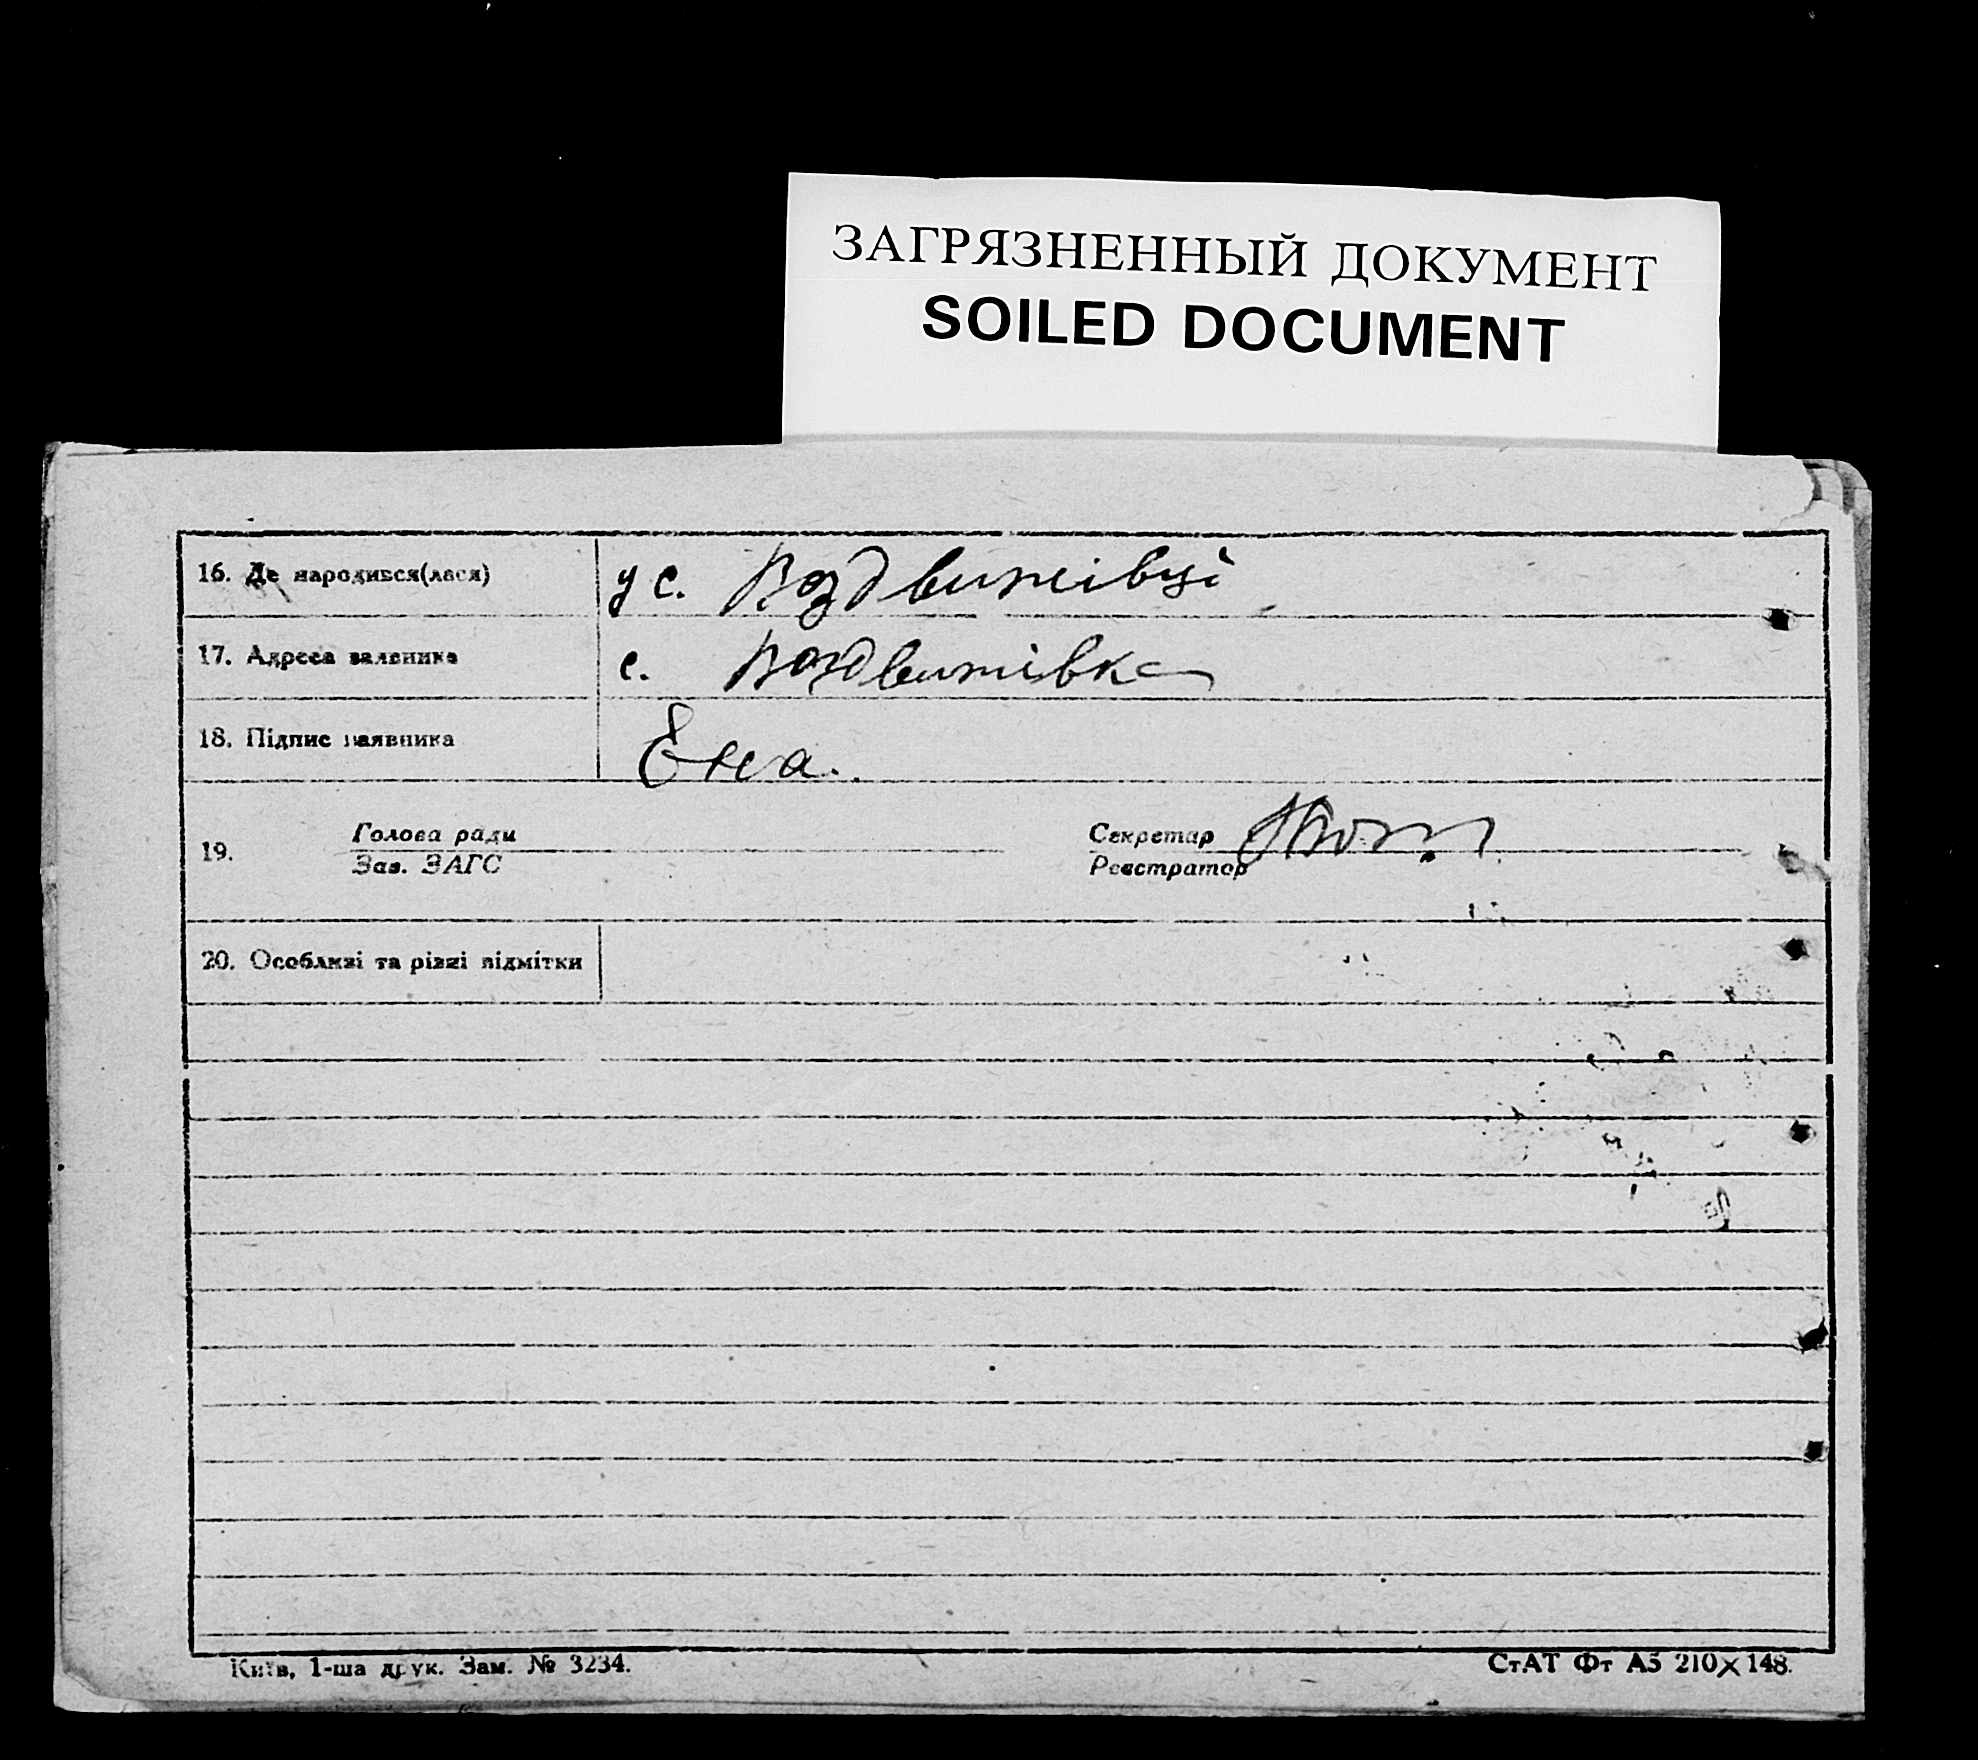 ЗАГРЯЗНЕННЫЙ ДОКУМЕНТ
SOILED DOCUMENT
16. Де народився(лася) у с. Воздвижівці
17. Адреса заявника с. Воздвижівка
18. Підпис заявника Єна.
19. Голова ради Секретар
Зав. ЗАГС Реєстратор
20. Особливі та різні відмітки
Київ, 1-ша друк. Зам. № 3234. СтАТ Фт А5 210×148.